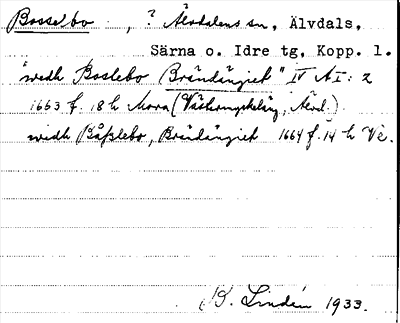 Bosselbo , ? Älvdalens sn, Älvdals,
Särna o. Idre tg, Kopp. l.
"wedh Boslebo Brändängiet" IV A I: 2
1663 f. 18 h Mora (Västermyckeläng, Älvd.)
widh Båsslebo, Brändängiet 1664 f. 14 h Ve.
B. Lindén 1933.